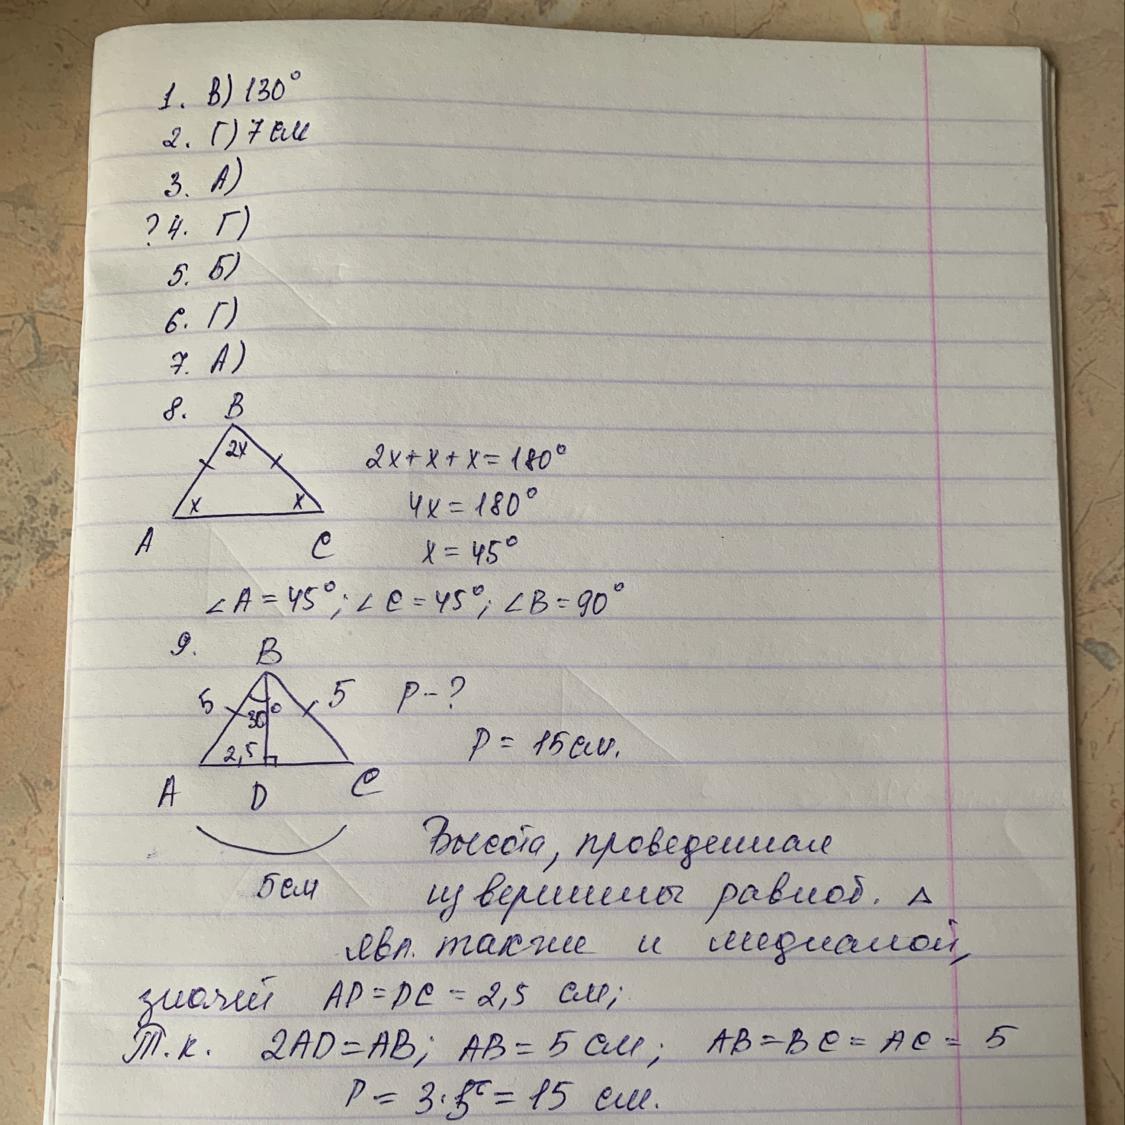 1. В) 130°
2. Г) 7 см
3. А)
? 4. Г)
5. Б)
6. Г)
7. А)
8. B
2x
x x
A C
2x + x + x = 180°
4x = 180°
x = 45°
∠A = 45°; ∠C = 45°; ∠B = 90°
9. B
5 5
30°
2,5
A D C
5 см
P - ?
P = 15 см.
Высота, проведенная
из вершины равноб. △
явл. также и медианой,
значит AD = DC = 2,5 см;
Т.к. 2AD = AB; AB = 5 см; AB = BC = AC = 5
P = 3·5 = 15 см.